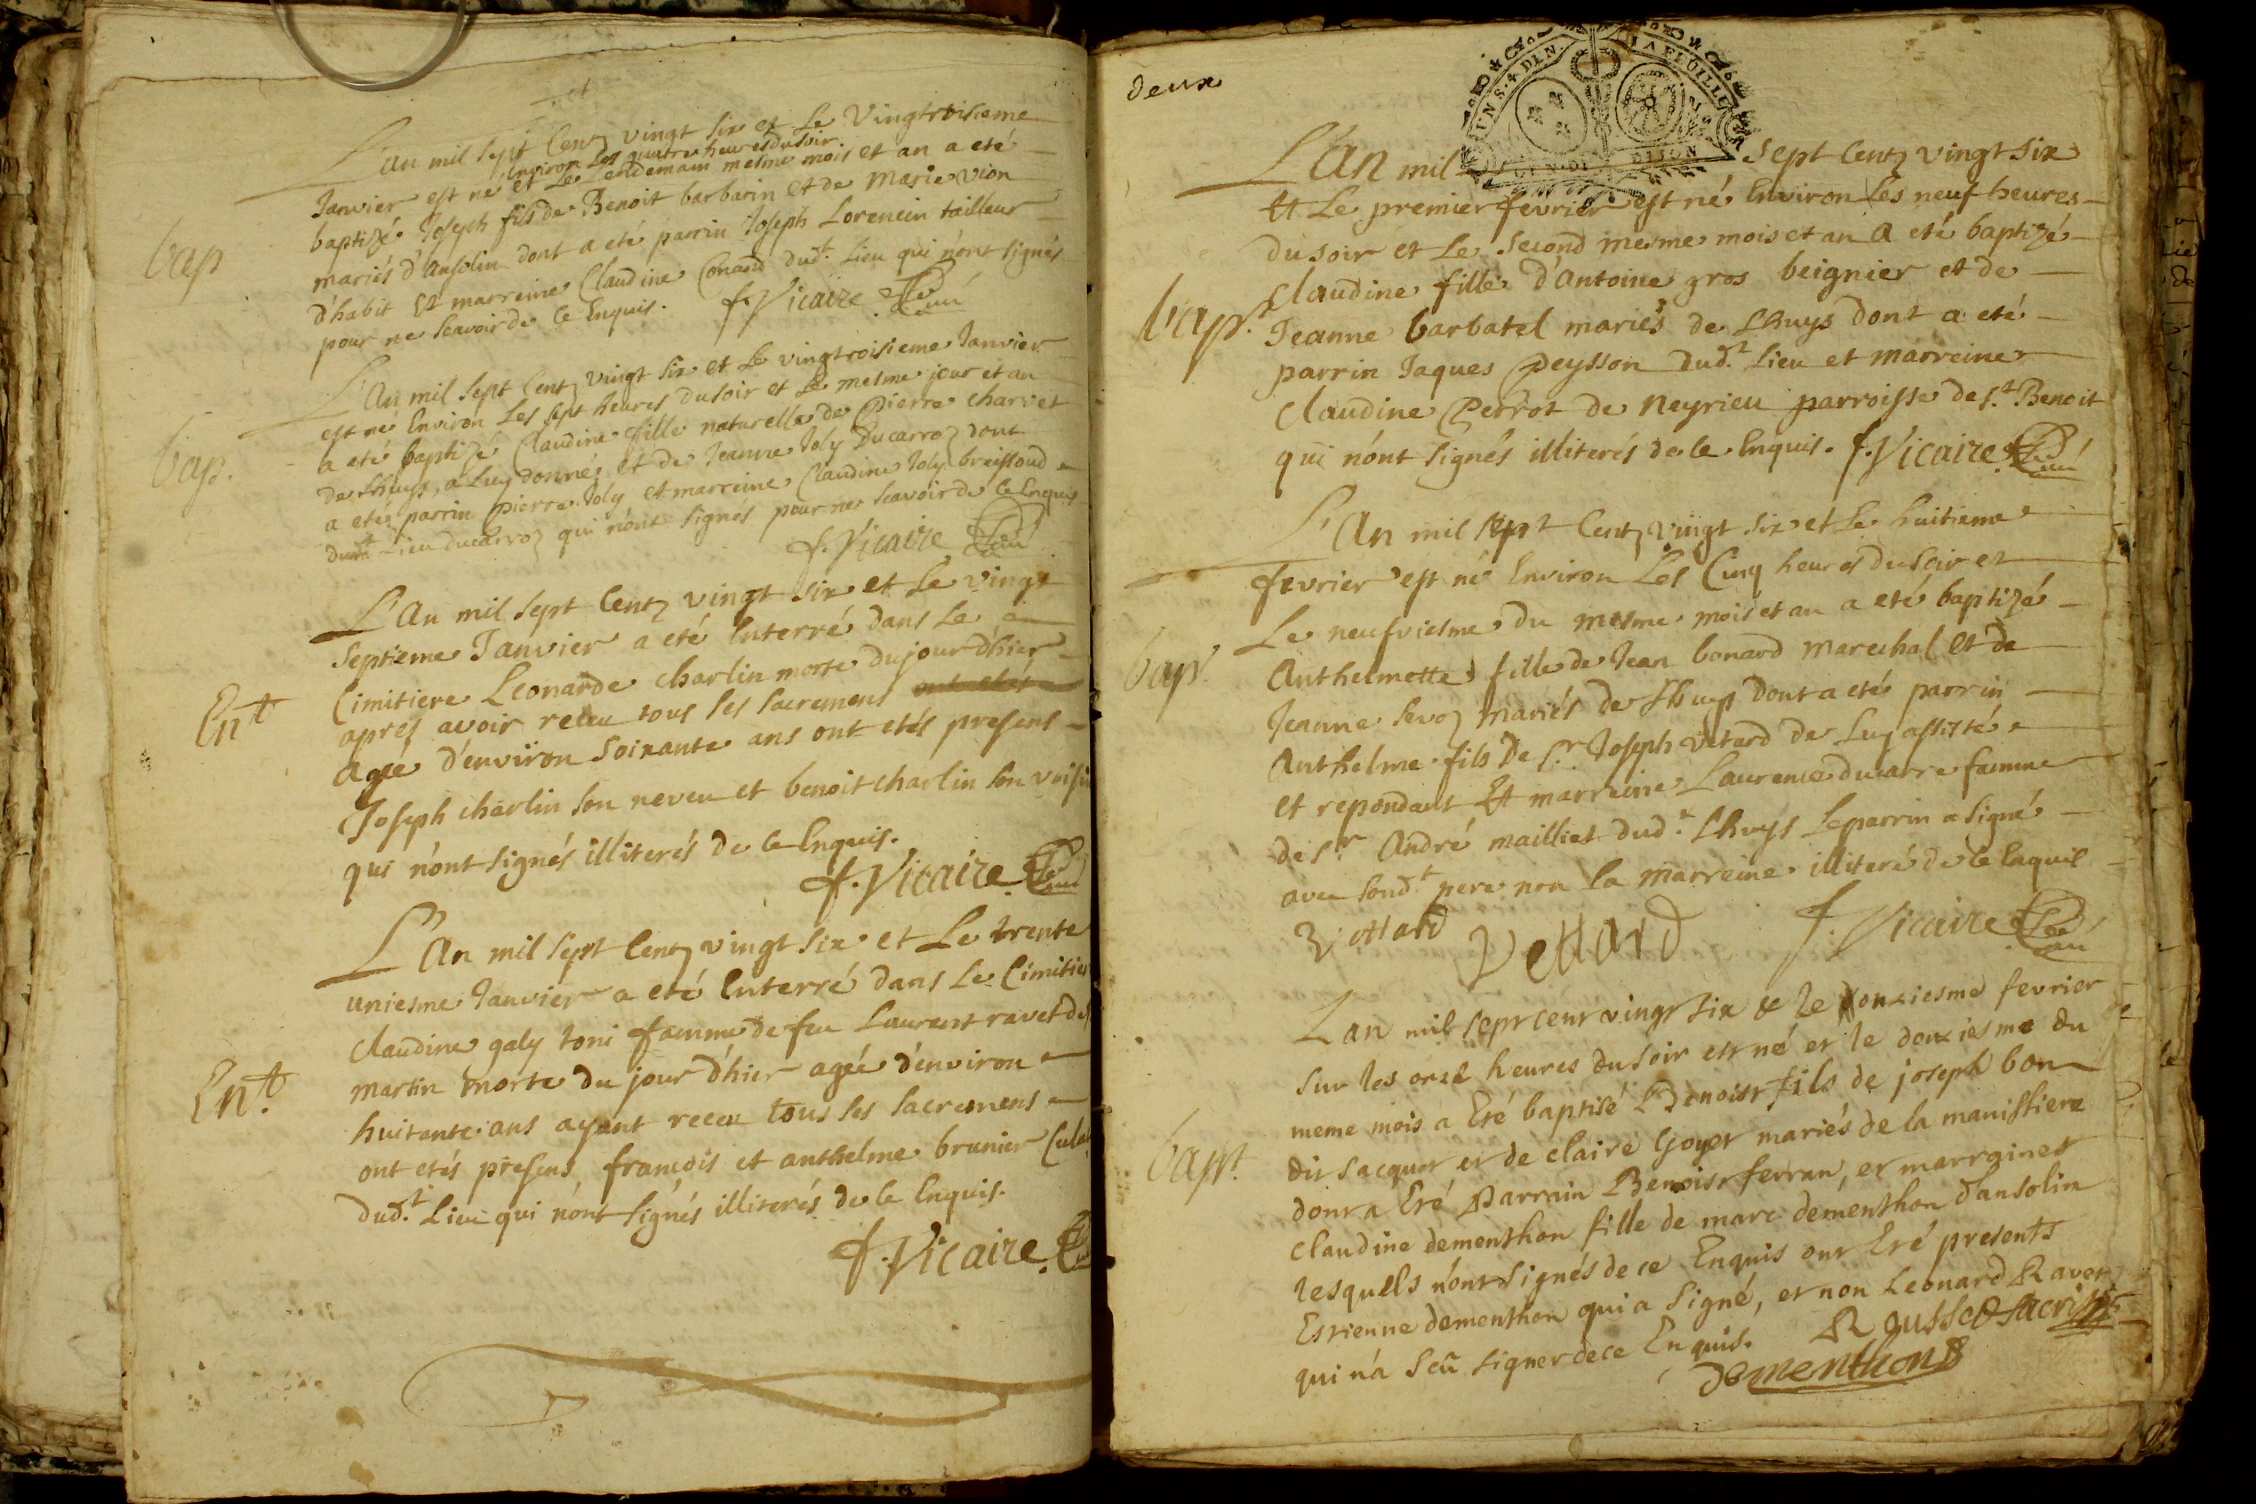 L'an mil sept Centz vingt six et Le Vingtroisieme
Environ Les quatre heures du soir
Janvier est né et Le Lendemain mesme mois et an a eté
baptizé Joseph fils de Benoit barbarin et de Marie vion
bap
mariés d'Ansolin dont a eté parrin Joseph Lorencin tailleur
d'habit Et marreine Claudine Conand dud.t Lieu qui n'ont signés
pour ne scavoir de ce Enquis. f. Vicaire Curé
L'An mil sept Centz vingt six et Le vingtroisieme Janvier
est né Environ Les sept heures du soir et Le mesme jour et an
a eté baptizé Claudine fille naturelle de Pierre charvet
bap.
de Lhuys, a Luy donnée et de Jeanne Joly Ducarroz dont
a eté parrin Pierre Joly et marreine Claudine Joly breissoud
dud.t Lieu ducarroz qui n'ont signés pour ne scavoir de ce Enquis
f. Vicaire Curé
L'An mil sept Centz vingt six et Le vingt
septieme Janvier a eté Enterré dans Le
Cimitiere Leonarde charlin morte du jour d'hier
Ent
aprés avoir receu tous ses sacremens ont etés
Agée d'environ soixante ans ont etés presens
Joseph charlin son neveu et benoit charlin son voisin
qui n'ont signés illiterés de ce Enquis.
f. Vicaire Curé
L'An mil sept Centz vingt six et Le trente
uniesme Janvier a eté Enterré dans Le Cimitier
Claudine galy toni famme de feu Laurent ravet de
Ent.
martin morte du jour d'hier agée d'environ
huitante ans ayant receu tous ses sacremens
ont etés presens, françois et anthelme brunier
dud.t Lieu qui n'ont signés illiterés de ce Enquis.
f. Vicaire
deux
UN S. 4 DEN. LA FEUILLE
GEN. DE DIJON
L'An mil sept Centz vingt six
Et Le premier fevrier est né Environ Les neuf heures
du soir et Le second mesme mois et an a eté baptizé
Claudine fille d'Antoine gros beignier et de
bapt.
Jeanne barbatel mariés de Lhuys dont a eté
parrin Jaques Peysson dud.t Lieu et marreine
Claudine Perrot de Neyrieu parroisse de s.t Benoit
qui n'ont signés illiterés de ce Enquis. f. Vicaire Curé
L'An mil sept Centz vingt six et Le huitieme
fevrier est né Environ Les Cinq heures du soir et
Le neufviesme du mesme mois et an a eté baptizé
bapt.
Anthelmette fille de Jean bonard marechal Et de
Jeanne sevoz mariés de Lhuys dont a etés parrin
Anthelme fils de s.r Joseph vetard de Luy assisté
et repondant Et marreine Laurence ducarre famme
de s.r André mailliet dud.t Lhuys Le parrin a signé
avec sond.t pere non la marreine illiteré de ce Enquis
Vettard Vettard f. Vicaire Curé
Lan mil sept cent vingt six & le onziesme fevrier
sur les onze heures du soir est né et le douxiesme du
meme mois a Eté baptisé Benoist fils de joseph bon
bapt.
dit sacquet et de claire Goyet mariés de la manissiere
dont a Eté Parrain Benoist ferran, et marraines
claudine dementhon fille de marc dementhon d'ansolin
lesquels n'ont signés de ce Enquis ont Eté presents
Estienne dementhon qui a signé, et non Leonard Ravet
qui n'a sceu signer de ce Enquis. Rousset sacristi
dementhon